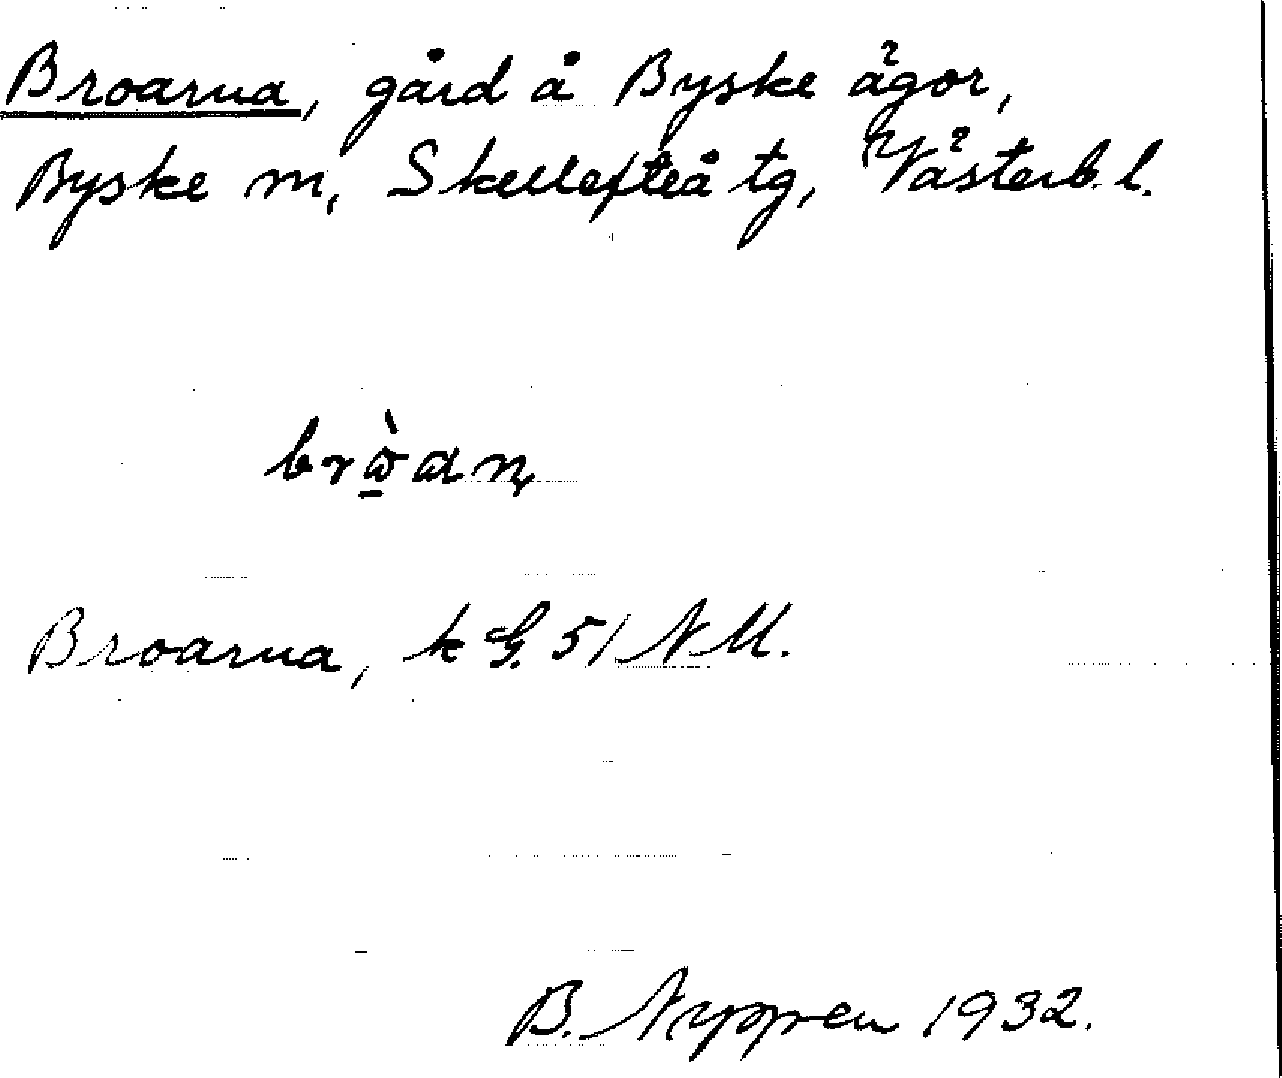 Broarna, gård å Byske ägor,
Byske m, Skellefteå tg, Västerb. l.
Broarna, k G. 51 N M.
B. Nyppen 1932.